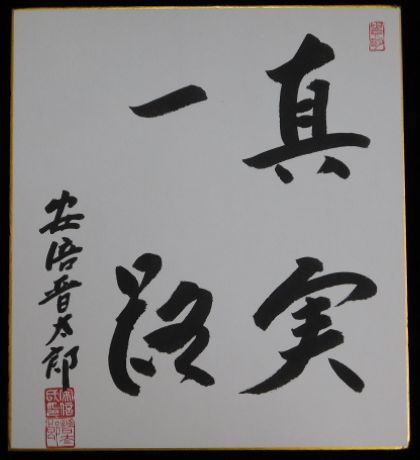 真実
一路
安倍晋太郎